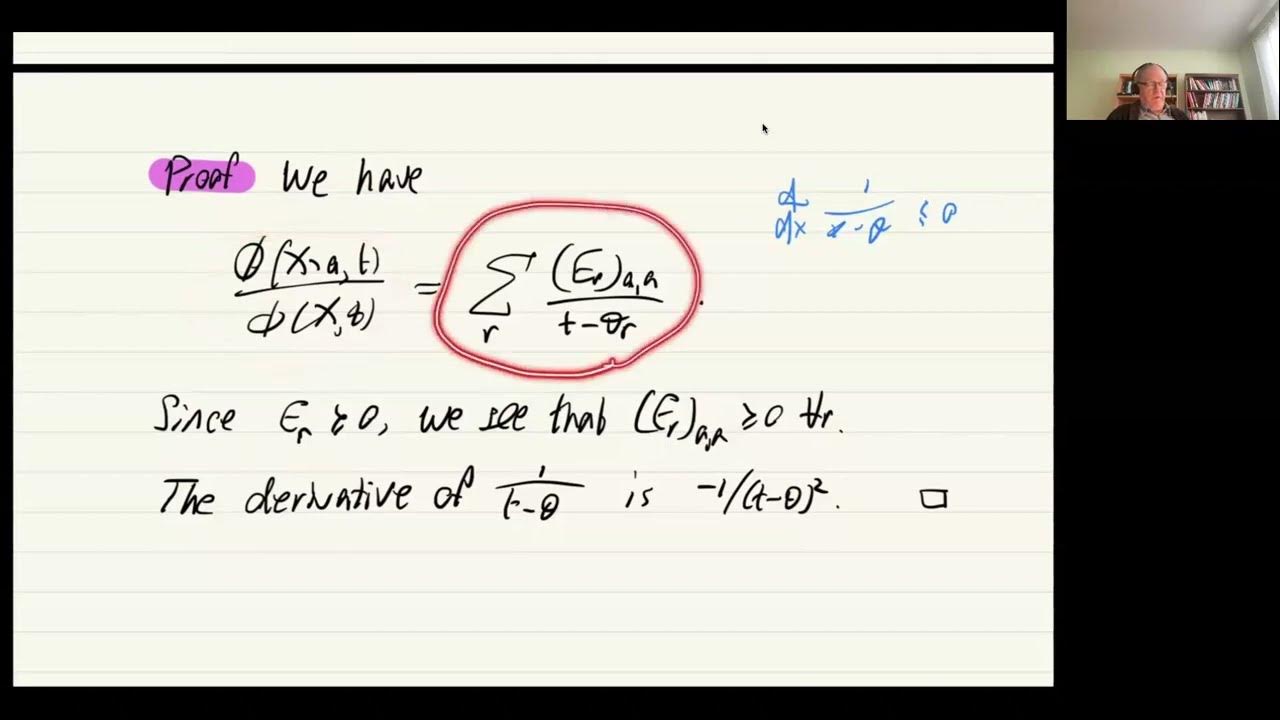 Proof We have
d/dx 1/(x-θ) ≤ 0
ϕ(X∖a, t)/ϕ(X, t) = Σ_r (E_r)_{a,a}/(t-θ_r).
Since E_r ≽ 0, we see that (E_r)_{a,a} ≥ 0 ∀r.
The derivative of 1/(t-θ) is -1/(t-θ)². □